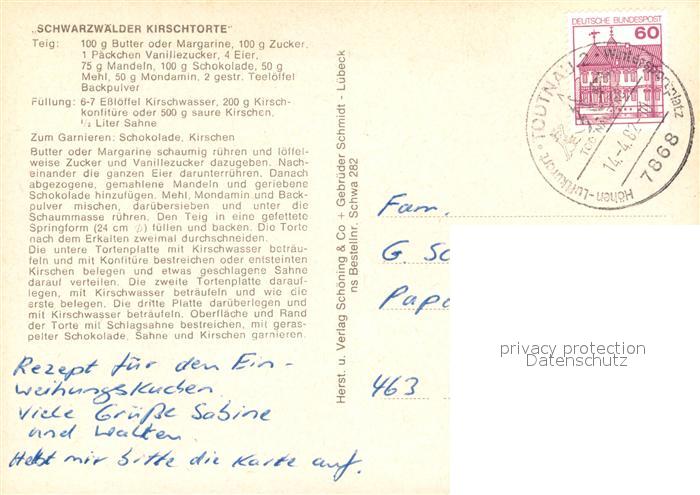 „SCHWARZWÄLDER KIRSCHTORTE"
Teig: 100 g Butter oder Margarine, 100 g Zucker,
1 Päckchen Vanillezucker, 4 Eier,
75 g Mandeln, 100 g Schokolade, 50 g
Mehl, 50 g Mondamin, 2 gestr. Teelöffel
Backpulver
Füllung: 6-7 Eßlöffel Kirschwasser, 200 g Kirsch-
konfitüre oder 500 g saure Kirschen,
½ Liter Sahne
Zum Garnieren: Schokolade, Kirschen
Butter oder Margarine schaumig rühren und löffel-
weise Zucker und Vanillezucker dazugeben. Nach-
einander die ganzen Eier darunterrühren. Danach
abgezogene, gemahlene Mandeln und geriebene
Schokolade hinzufügen. Mehl, Mondamin und Back-
pulver mischen, darübersieben und unter die
Schaummasse rühren. Den Teig in eine gefettete
Springform (24 cm ∅) füllen und backen. Die Torte
nach dem Erkalten zweimal durchschneiden.
Die untere Tortenplatte mit Kirschwasser beträu-
feln und mit Konfitüre bestreichen oder entsteinten
Kirschen belegen und etwas geschlagene Sahne
darauf verteilen. Die zweite Tortenplatte darauf-
legen, mit Kirschwasser beträufeln und wie die
erste belegen. Die dritte Platte darüberlegen und
mit Kirschwasser beträufeln. Oberfläche und Rand
der Torte mit Schlagsahne bestreichen, mit geras-
pelter Schokolade, Sahne und Kirschen garnieren.
Rezept für den Ein-
weihungskuchen
Viele Grüße Sabine
und
Hebt mir bitte die Karte auf.
Herst. u. Verlag Schöning & Co + Gebrüder Schmidt - Lübeck
ns Bestellnr. Schwa 282
DEUTSCHE BUNDESPOST
60
TODTNAU 2 · Wintersportplatz
Höhen-Luftkurort
14.-4.82
7868
Fam.
G. Sc
Pap
463
privacy protection
Datenschutz